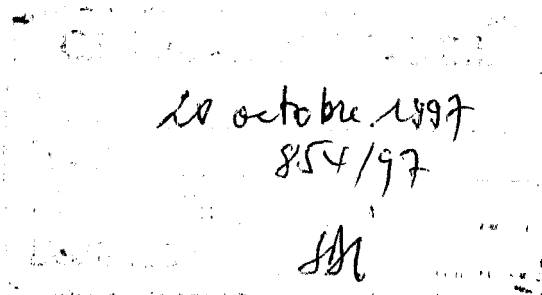 20 octobre 1997
854/97